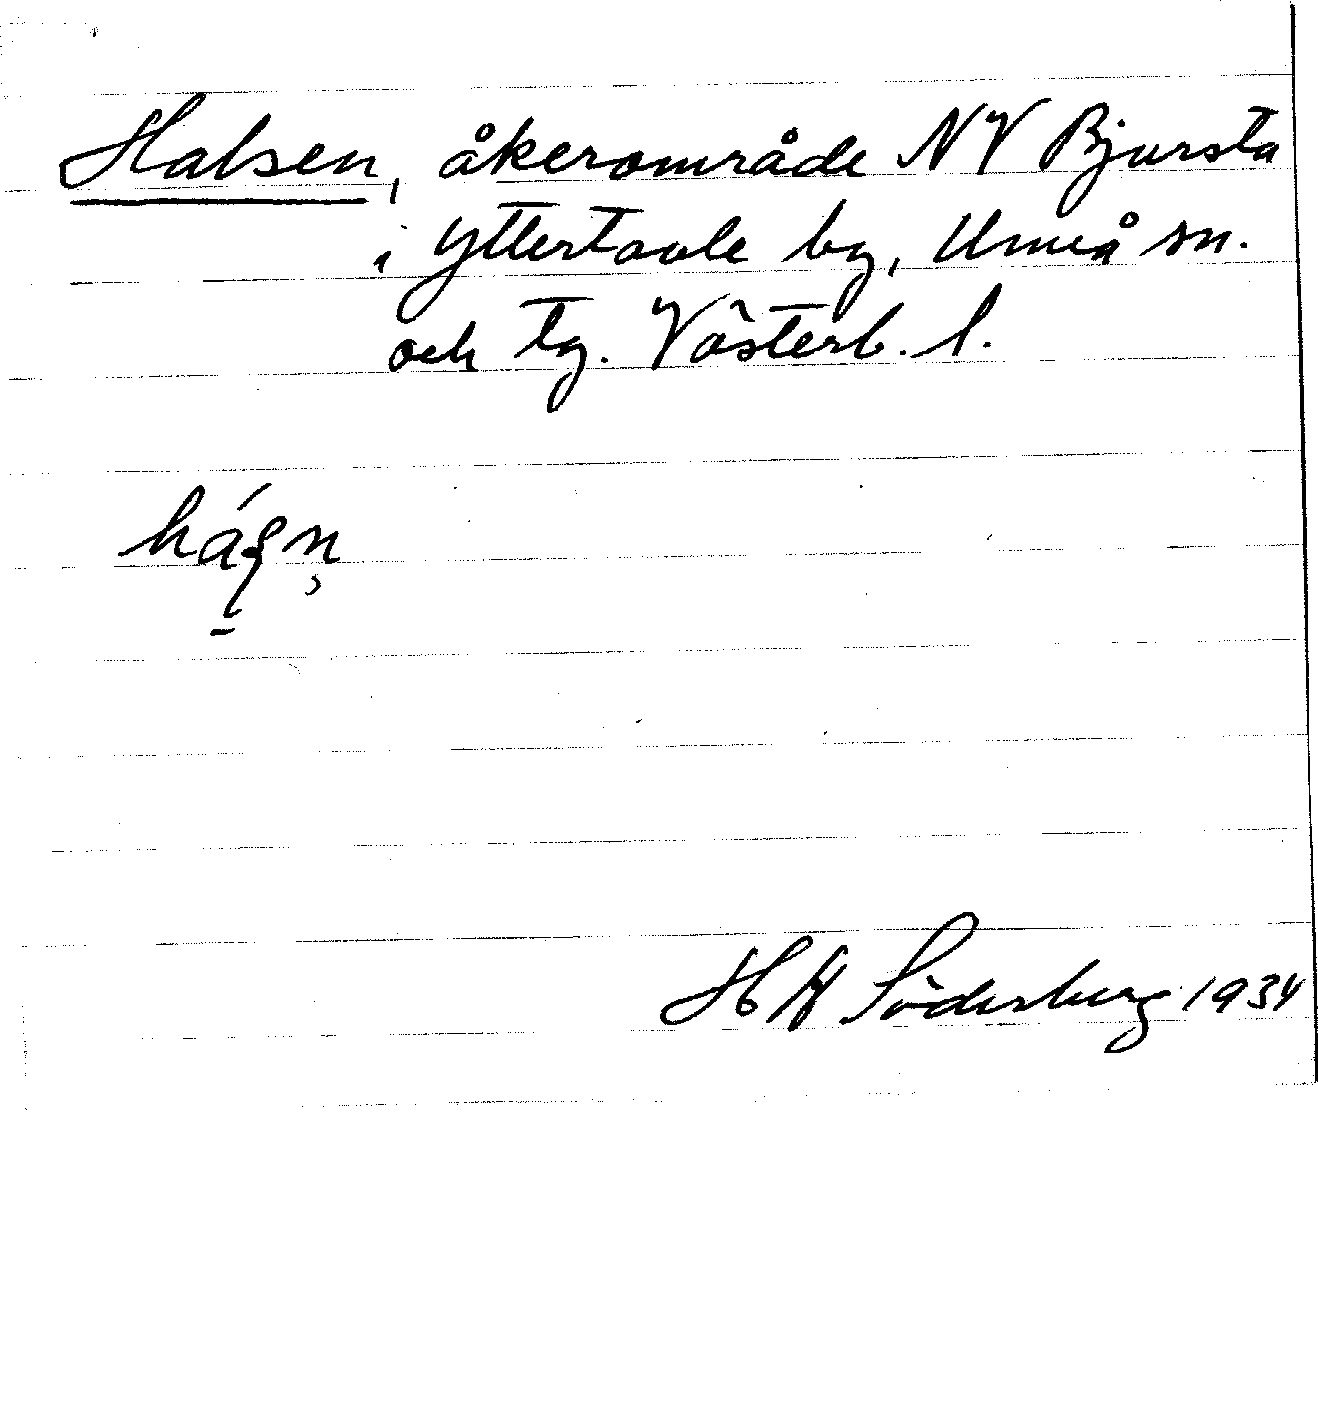 Halsen, åkerområde NV Bjursta
i Yttertavle by, Umeå sn.
och tg. Västerb. l.
H H Söderberg 1934